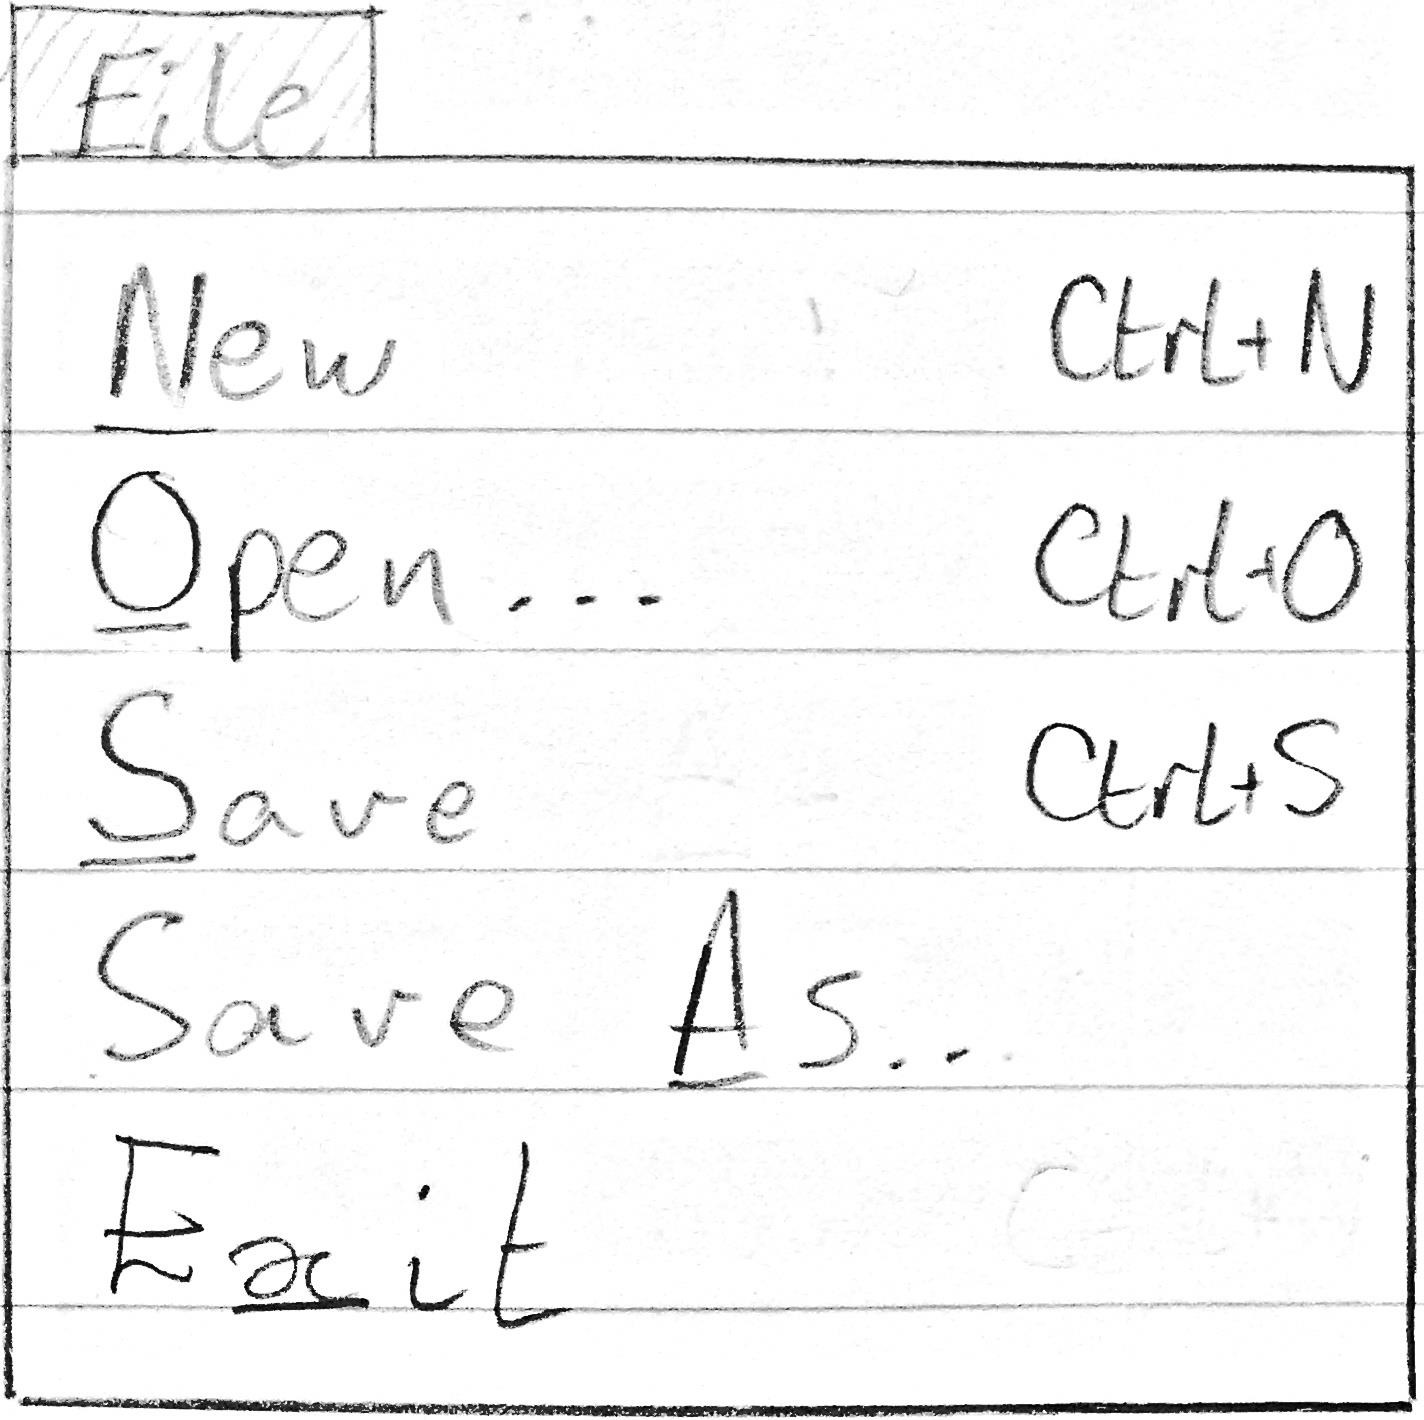 File
New Ctrl+N
Open... Ctrl+O
Save Ctrl+S
Save As...
Exit